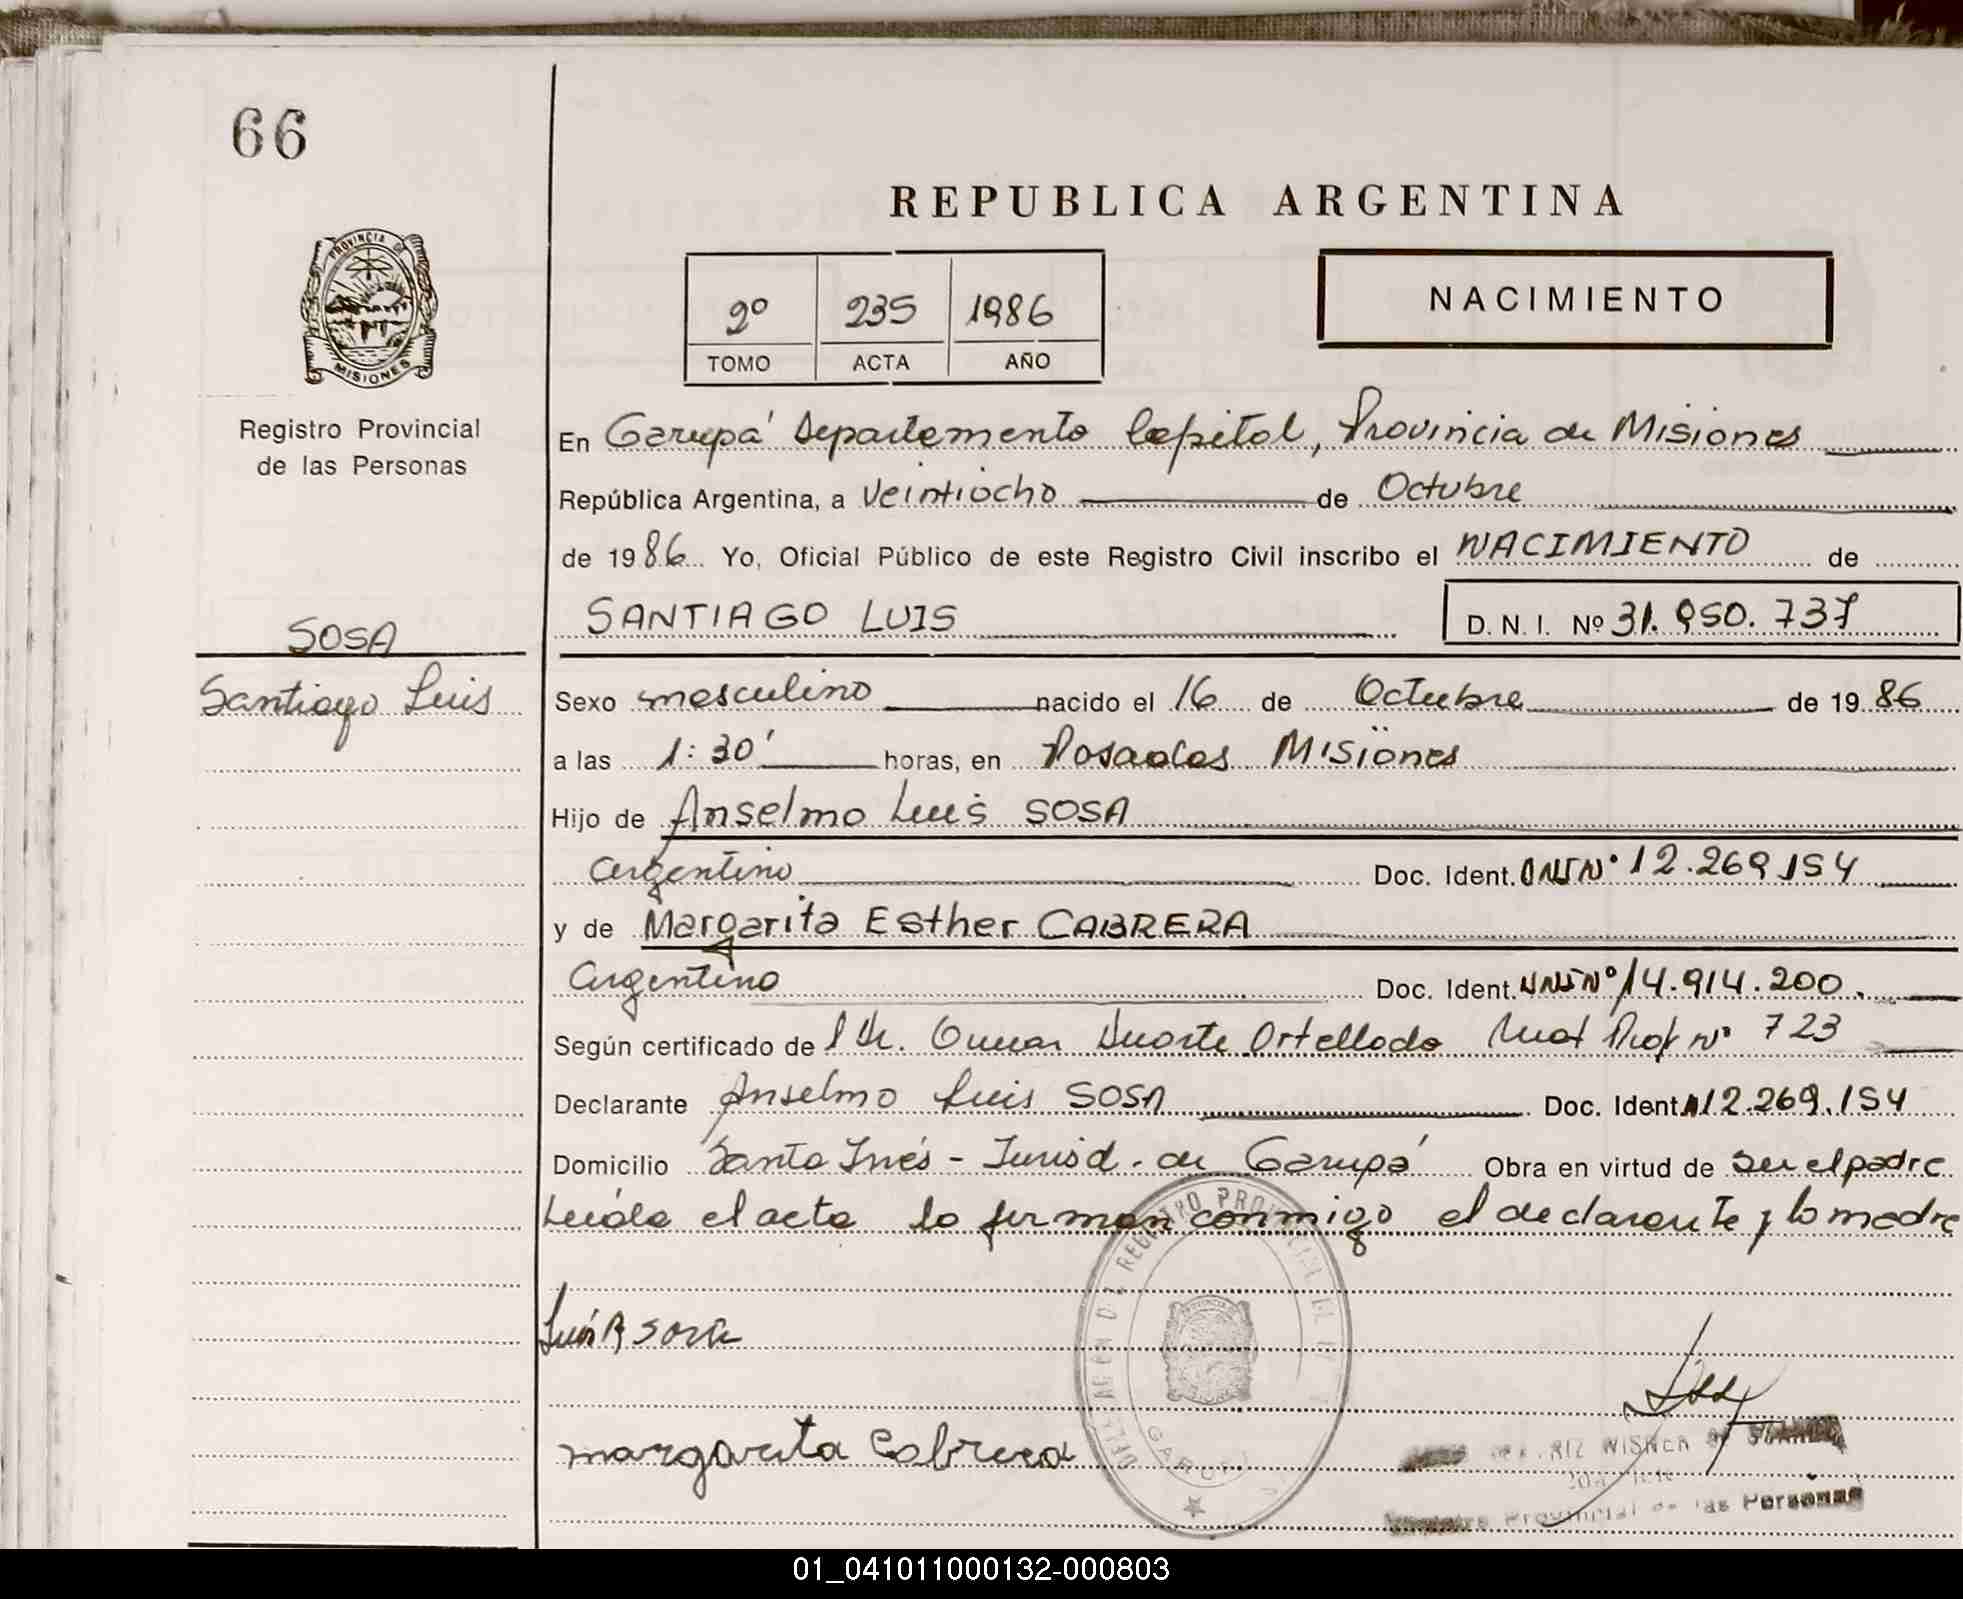 66
REPUBLICA ARGENTINA
PROVINCIA DE
MISIONES
2º 235 1986
TOMO ACTA AÑO
NACIMIENTO
Registro Provincial
de las Personas
En Garupá Departamento Capital, Provincia de Misiones
República Argentina, a Veintiocho de Octubre
de 1986 Yo, Oficial Público de este Registro Civil inscribo el NACIMIENTO de
SANTIAGO LUIS D.N.I. Nº 31.950.737
SOSA
Santiago Luis
Sexo masculino nacido el 16 de Octubre de 1986
a las 1:30' horas, en Posadas Misiones
Hijo de Anselmo Luis SOSA
argentino Doc. Ident. DNI Nº 12.269.154
y de Margarita Esther CABRERA
Argentina Doc. Ident. DNI Nº 14.914.200.
Según certificado de Dr. Duarte Ortellado Mat Prof Nº 723
Declarante Anselmo Luis SOSA Doc. Ident 12.269.154
Domicilio Santa Inés - Jurisd. de Garupá Obra en virtud de ser el padre
Leída el acta la firman conmigo el declarante y la madre
Luis A sosa
margarita Cabrera
REGISTRO PROVINCIAL DE
GARUPA
WISNER DE
Registro Provincial de las Personas
01_041011000132-000803